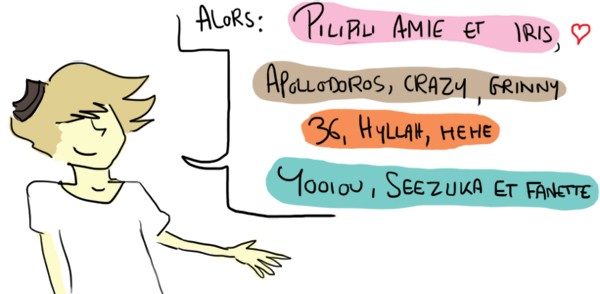 ALORS: PILIPILI AMIE ET IRIS,
APOLLODOROS, CRAZY, GRINNY
36, HYLLAH, HEHE
YOOIOU, SEEZUKA ET FANETTE